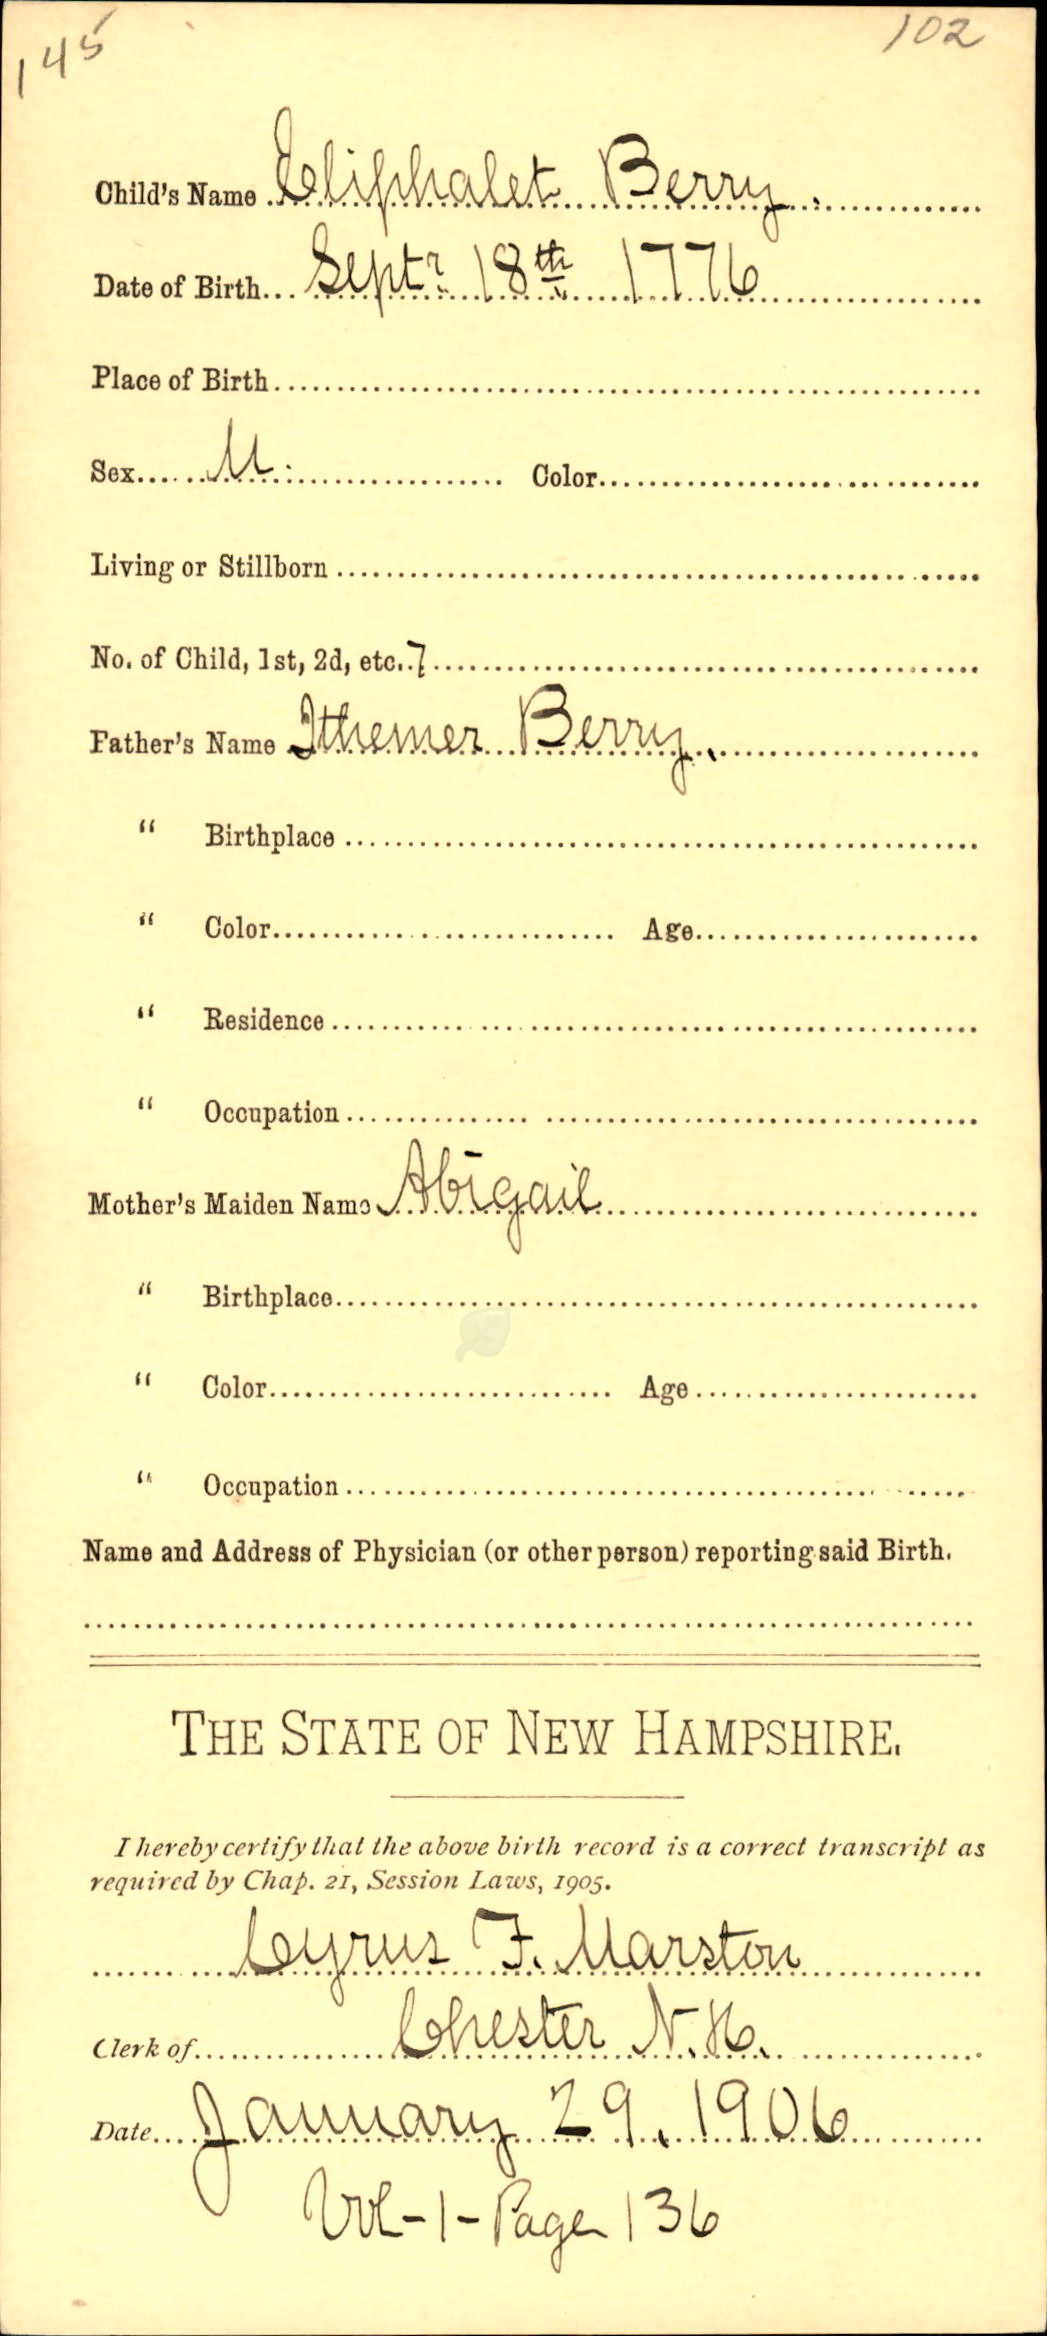 145
102
Child's Name Eliphalet Berry.
Date of Birth Septr 18th 1776
Place of Birth
Sex M. Color
Living or Stillborn
No. of Child, 1st, 2d, etc. 7
Father's Name Ithemer Berry.
" Birthplace
" Color Age
" Residence
" Occupation
Mother's Maiden Name Abigail
" Birthplace
" Color Age
" Occupation
Name and Address of Physician (or other person) reporting said Birth.
THE STATE OF NEW HAMPSHIRE.
I hereby certify that the above birth record is a correct transcript as
required by Chap. 21, Session Laws, 1905.
Cyrus F. Marston
Clerk of Chester N.H.
Date January 29, 1906
Vol-1-Page 136